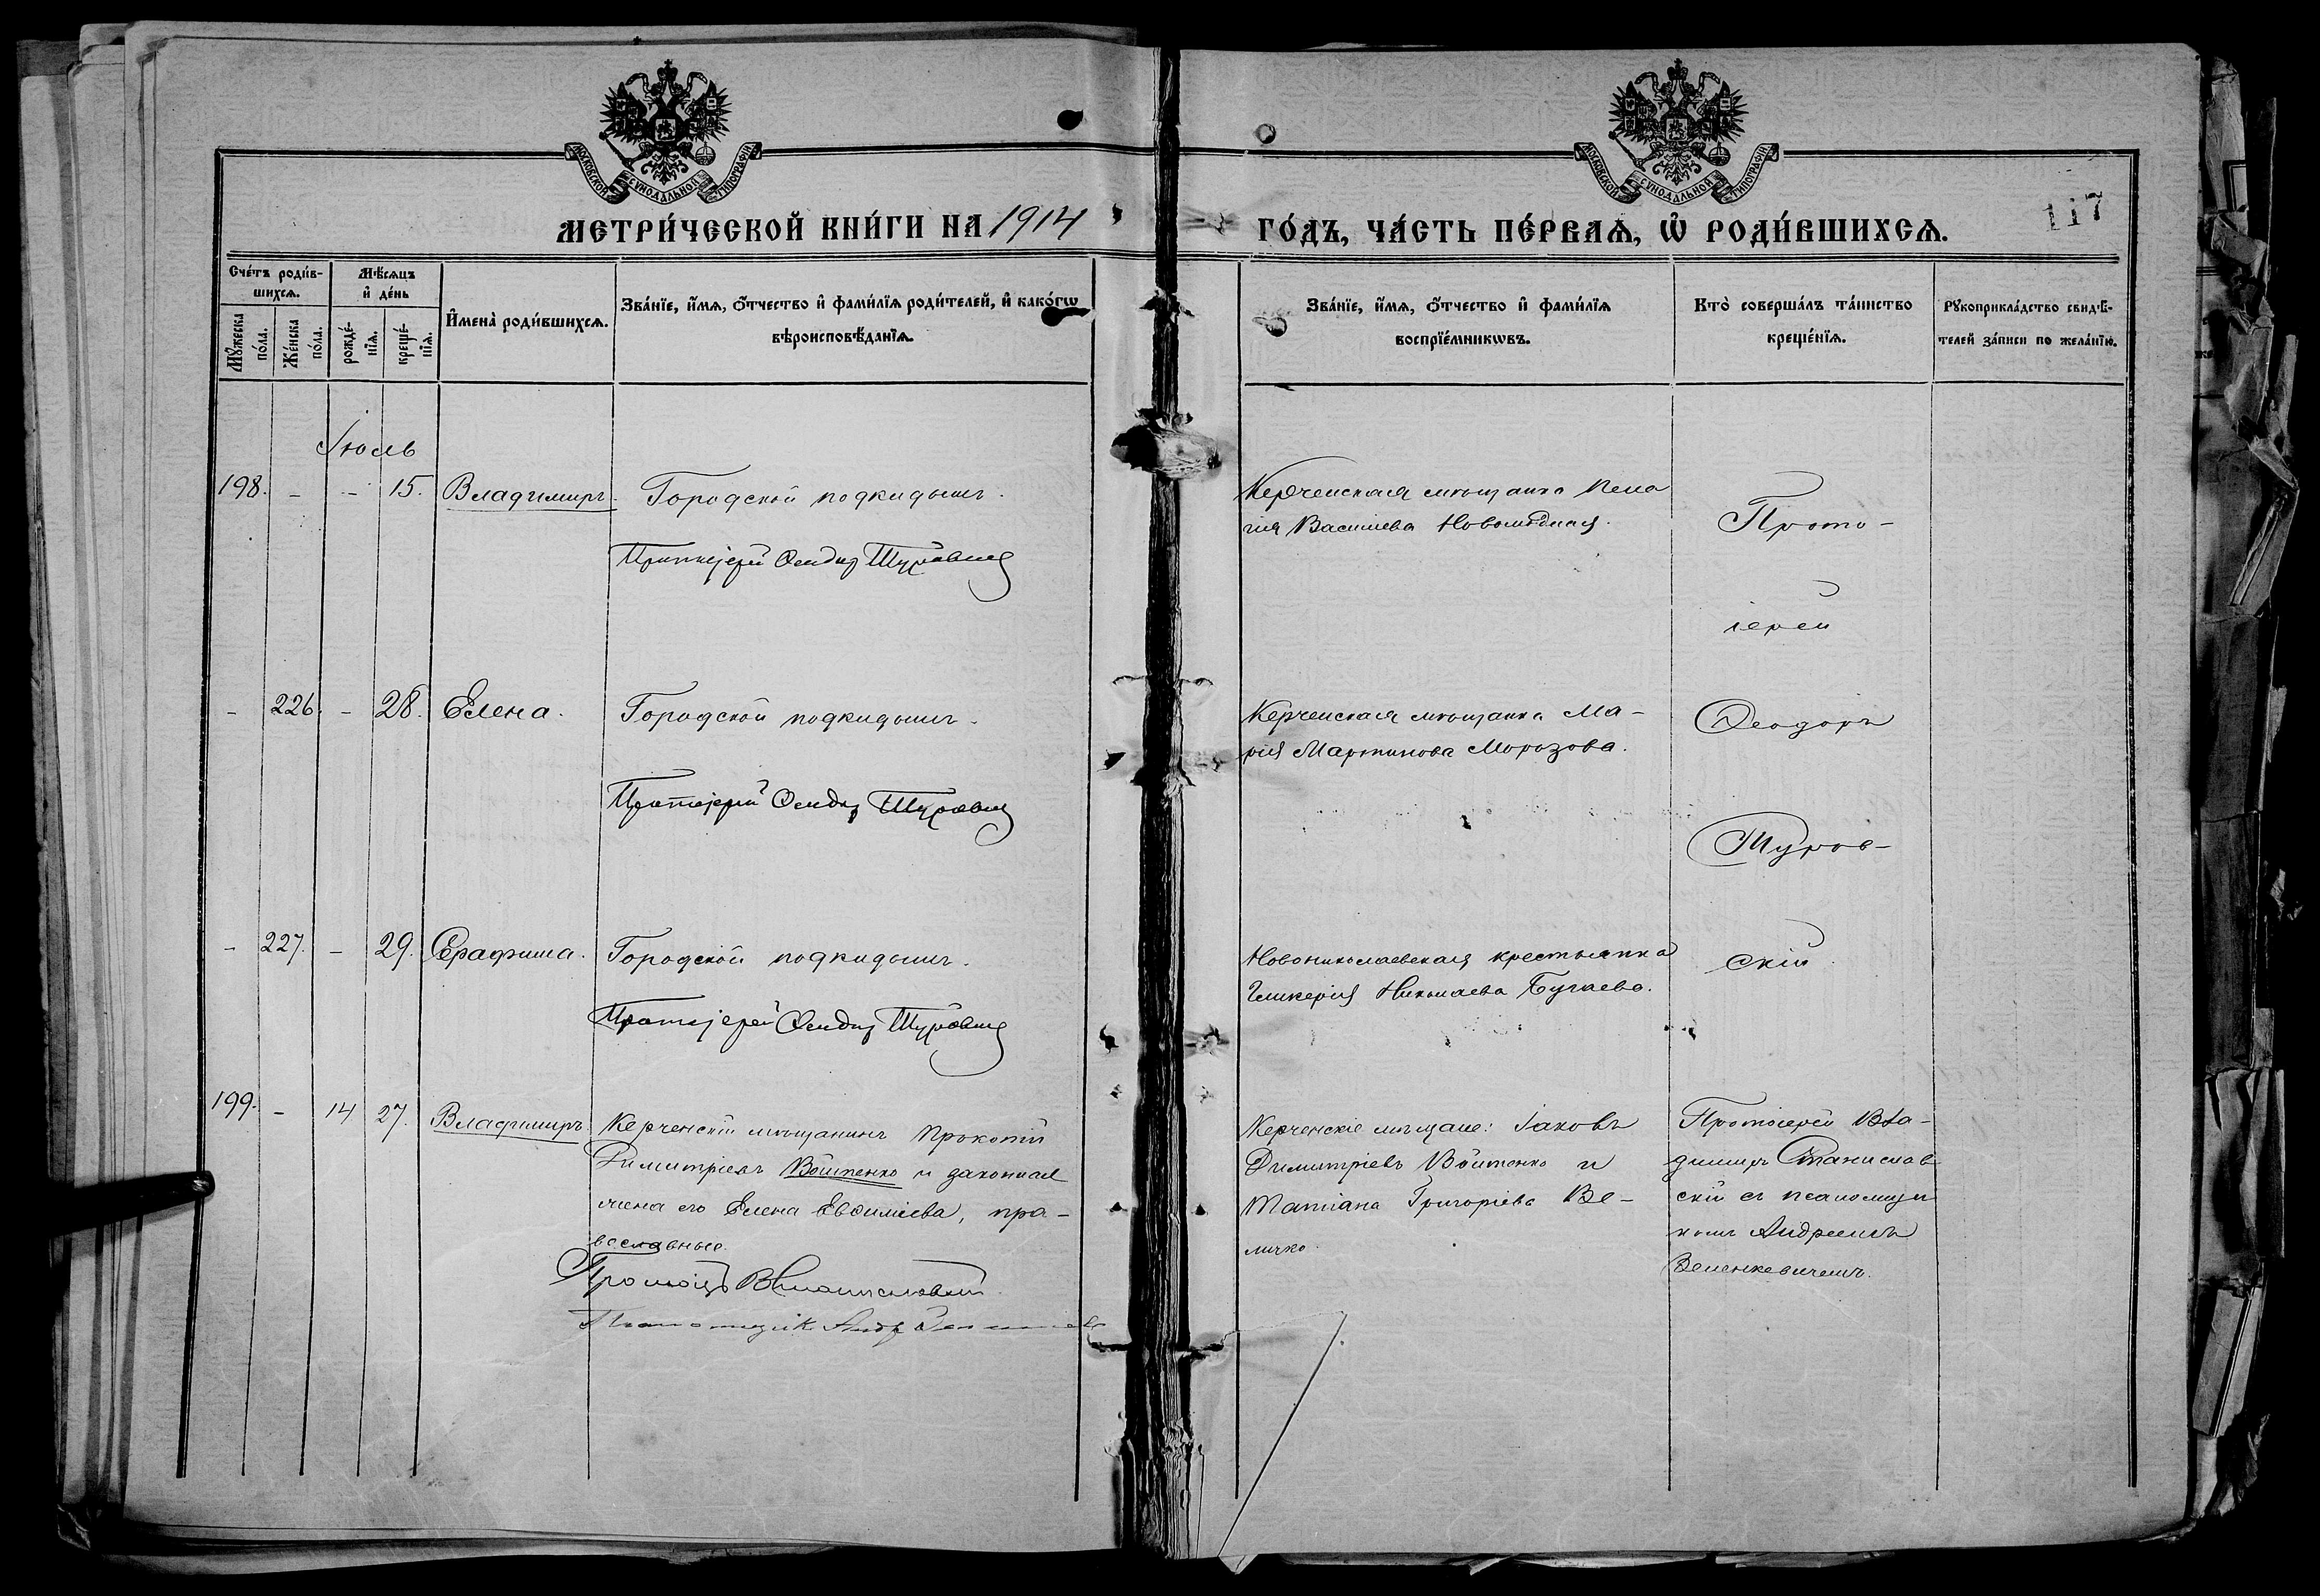 МОСКОВСКОЙ СѴНОДАЛЬНОЙ ТИПОГРАФІИ
МОСКОВСКОЙ СѴНОДАЛЬНОЙ ТИПОГРАФІИ
МЕТРИ́ЧЕСКОЙ КНИ́ГИ НА 1914
ГО́ДЪ, ЧА́СТЬ ПЕ́РВАѦ, Ѡ҆ РОДИ́ВШИХСѦ.
117
Сче́тъ роди́в-
шихсѧ.
Мѣ́сѧцъ
и҆ де́нь
Мꙋ́жеска
по́ла.
Же́нска
по́ла.
рожде́-
нїѧ.
креще́-
нїѧ.
И҆мена̀ роди́вшихсѧ.
Зва́нїе, и҆́мѧ, ѻ҆́тчество и҆ фами́лїѧ роди́телей, и҆ како́гѡ
вѣроисповѣ́данїѧ.
Зва́нїе, и҆́мѧ, ѻ҆́тчество и҆ фами́лїѧ
воспрїе́мникѡвъ.
Кто̀ соверша́лъ та́инство
креще́нїѧ.
Рꙋкоприкла́дство свидѣ́-
телей за́писи по жела́нїю.
Іюль
198. - - 15. Владимиръ. Городской подкидышъ.
Протоіерей Ѳеодоръ Туровскій
Керченская мѣщанка Пела
гія Васильева
Прото-
іерей
- 226. - 28. Елена. Городской подкидышъ.
Протоіерей Ѳеодоръ Туровскій
Керченская мѣщанка Ма-
рія Мартинова Морозова.
Ѳеодоръ
Туров-
- 227. - 29. Серафима. Городской подкидышъ.
Протоіерей Ѳеодоръ Туровскій
Новониколаевская крестьянка
Гликерія Николаева Бугаева.
скій
199. - 14. 27. Владимиръ. Керченскій мѣщанинъ Прокопій
Димитріевъ Войтенко и законная
жена его Елена Евѳиміева, пра-
вославные.
Протоіер В Станиславскій
Псаломщикъ Андр
Керченскіе мѣщане: Іаковъ
Димитріевъ Войтенко и
Татіана Григорьева Ве-
личко.
Протоіерей Вла-
димиръ Станислав
скій съ псаломщи
комъ Андреемъ
Зеленкевичемъ.